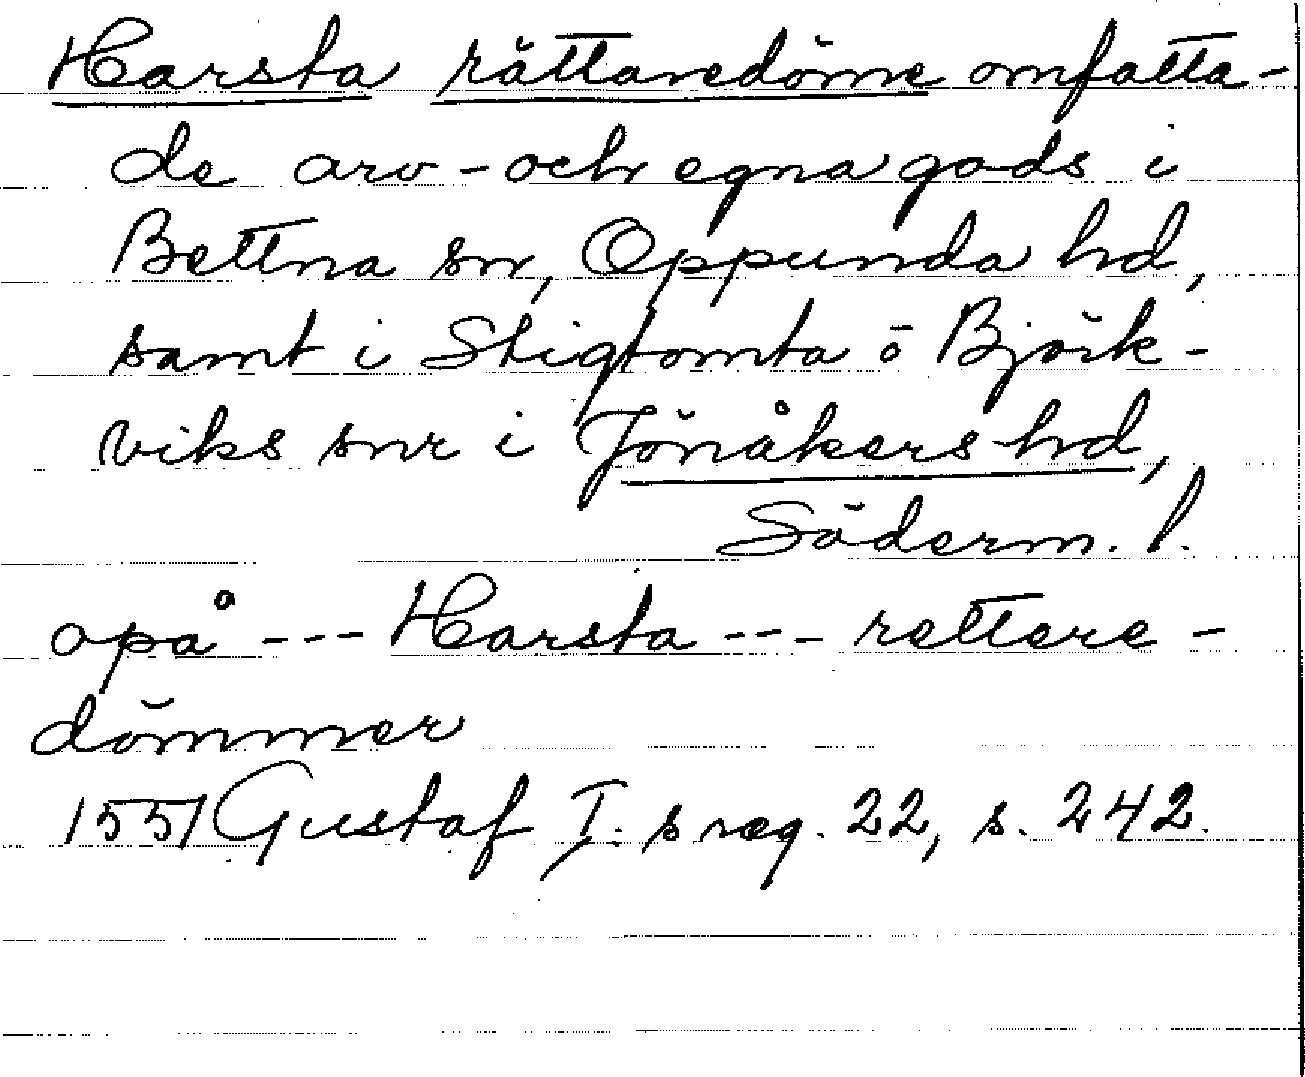 Harsta rättaredöme omfatta-
de arv- och egna gods i
Bettna sn, Oppunda hd,
samt i Stigtomta o Björk-
viks snr i Jönåkers hd,
Söderm. l.
opå --- Harsta --- rettere-
dömmer
1551 Gustaf I:s reg. 22, s. 242.